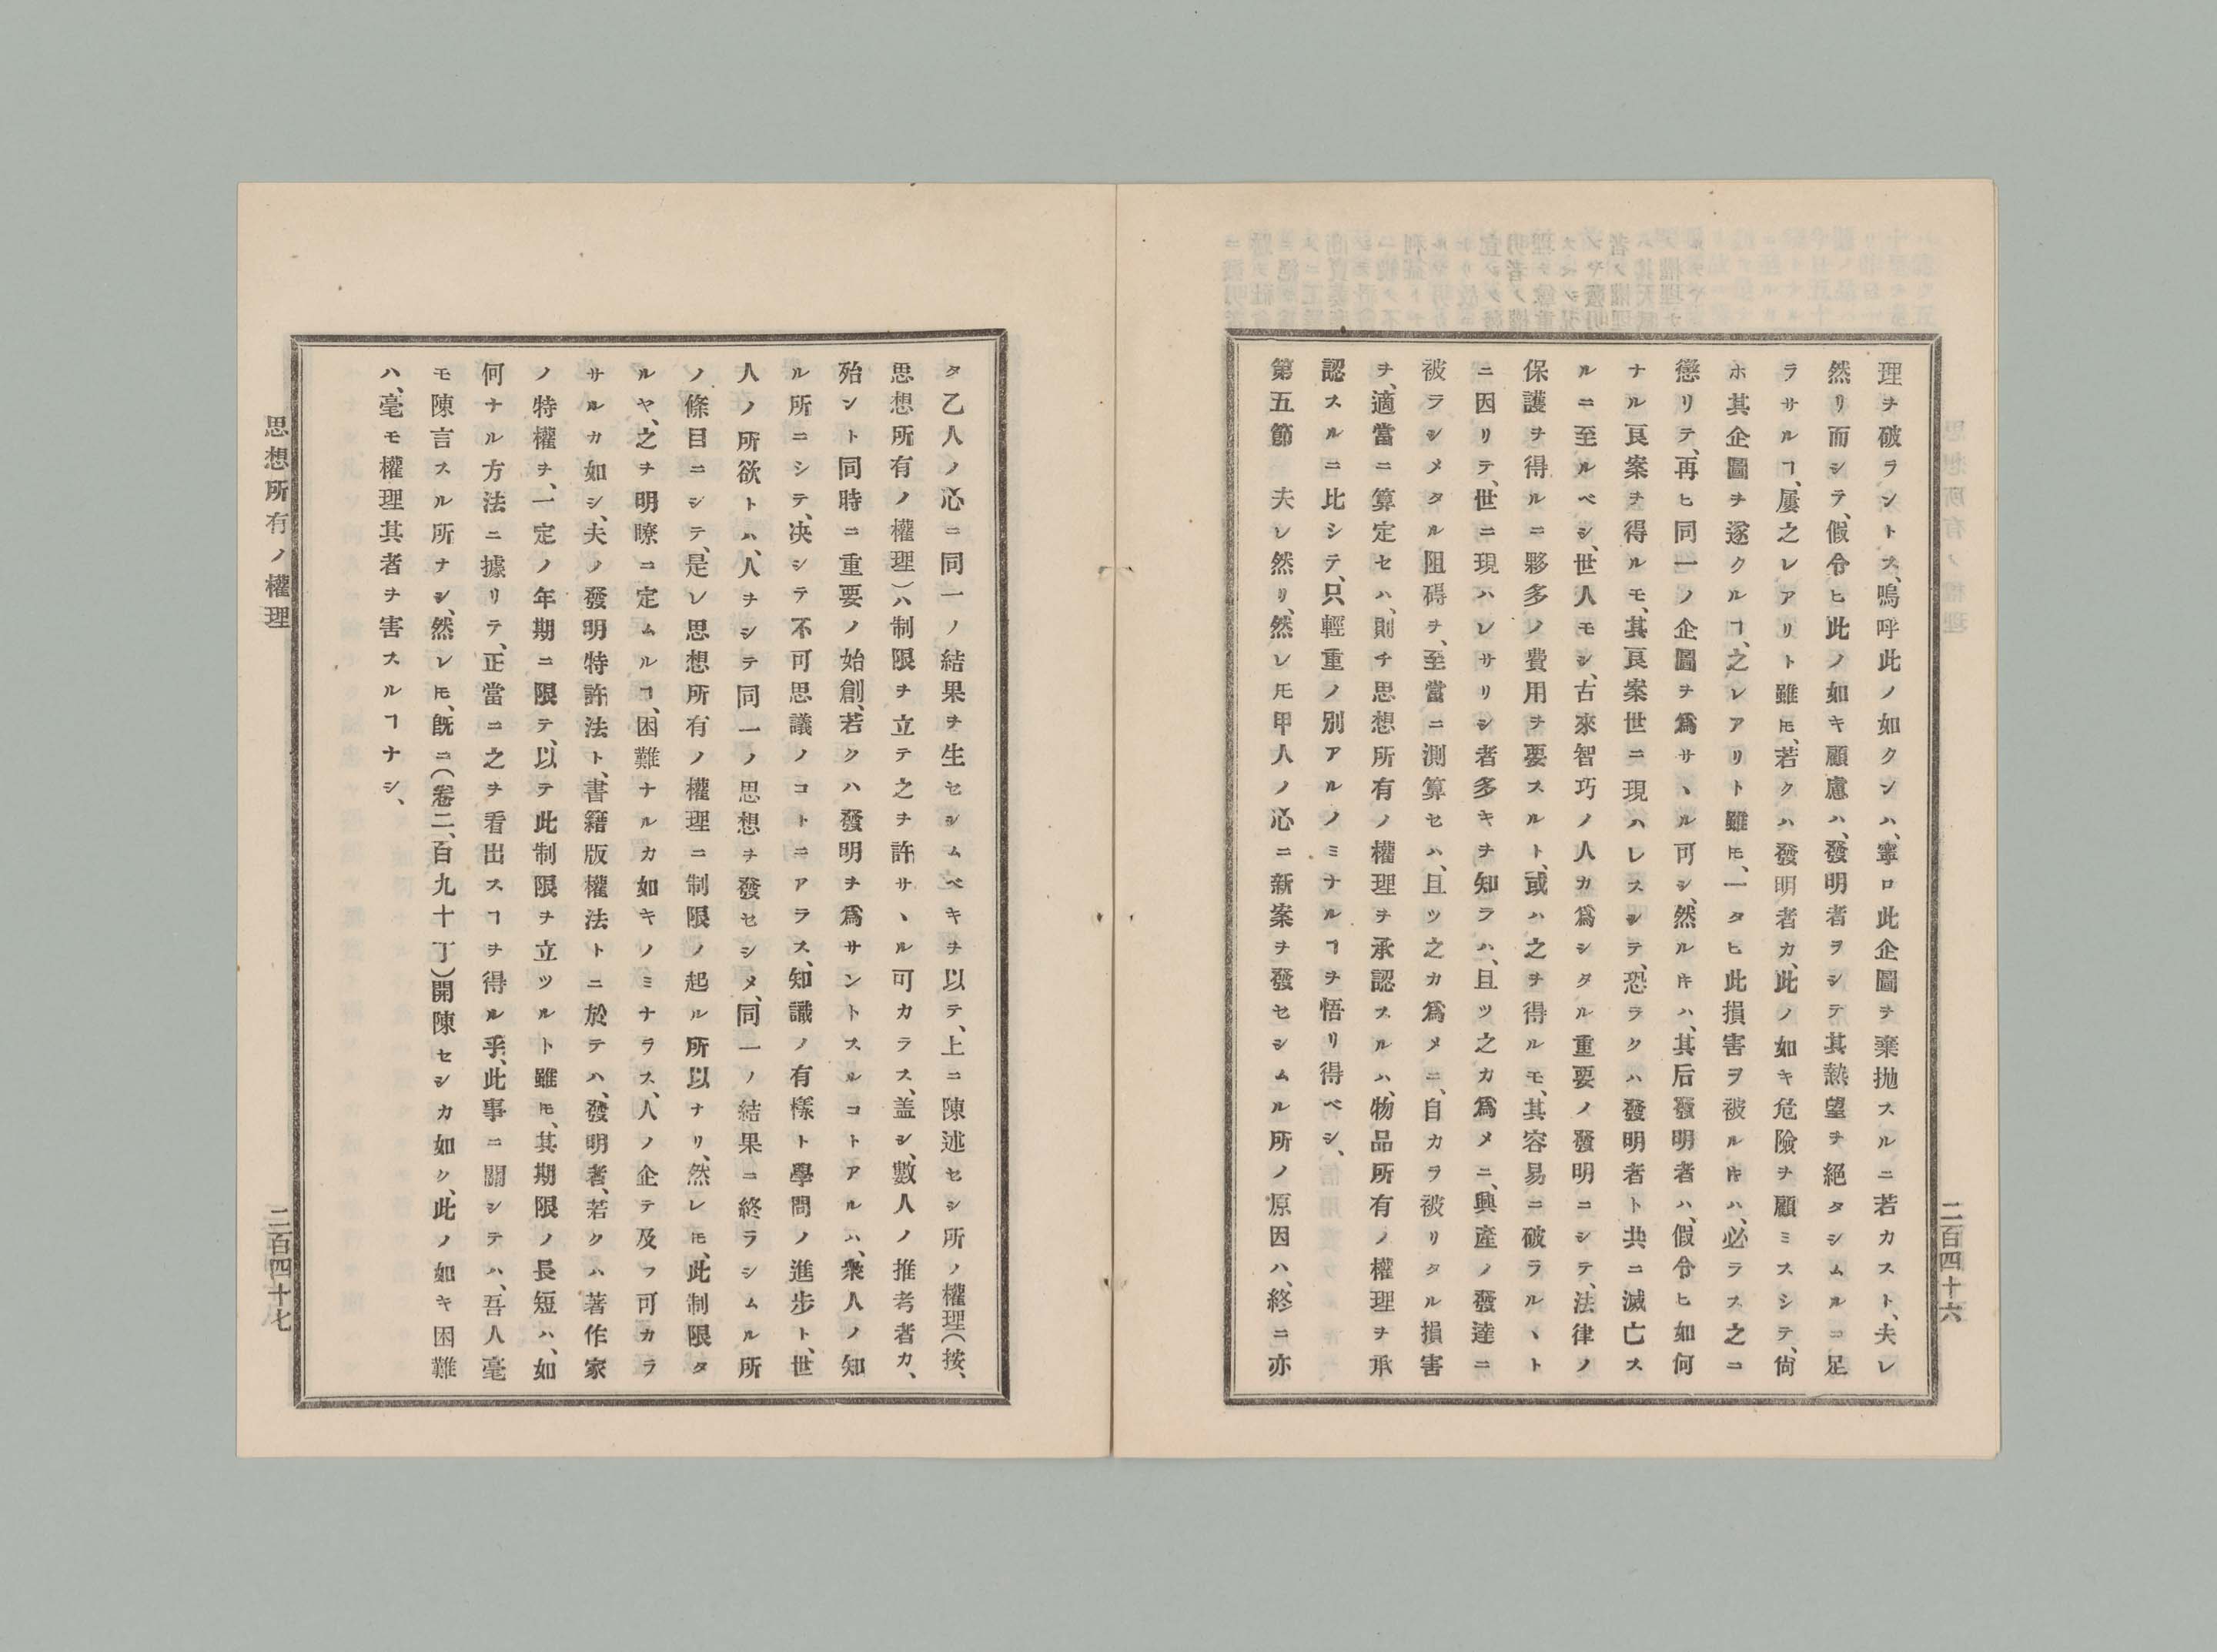 理ヲ破ラントス、嗚呼此ノ如クンハ、寧ロ此企圖ヲ棄抛スルニ若カスト、夫レ
然リ而シテ、假令ヒ此ノ如キ顧慮ハ、發明者ヲシテ其熱望ヲ絕タシムルニ足
ラサルヿ、屢之レアリト雖𪜈、若クハ發明者カ、此ノ如キ危險ヲ顧ミスシテ、尙
ホ其企圖ヲ遂クルヿ、之レアリト雖𪜈、一タヒ此損害ヲ被ルㇳキハ、必ラス之ニ
懲リテ、再ヒ同一ノ企圖ヲ爲サヽル可シ、然ルㇳキハ、其后發明者ハ、假令ヒ如何
ナル良案ヲ得ルモ、其良案世ニ現ハレスシテ、恐ラクハ發明者ト共ニ滅亡ス
ルニ至ルベシ、世人モシ、古來智巧ノ人カ爲シタル重要ノ發明ニシテ、法律ノ
保護ヲ得ルニ夥多ノ費用ヲ要スルト、或ハ之ヲ得ルモ、其容易ニ破ラルヽト
ニ因リテ、世ニ現ハレサリシ者多キヲ知ラハ、且ツ之カ爲メニ、興產ノ發達ニ
被ラシメタル阻碍ヲ、至當ニ測算セハ、且ツ之カ爲メニ、自カラ被リタル損害
ヲ、適當ニ算定セハ、則チ思想所有ノ權理ヲ承認スルハ、物品所有ノ權理ヲ承
認スルニ比シテ、只輕重ノ別アルノミナルヿヲ悟リ得ベシ、
第五節　夫レ然リ、然レ𪜈甲人ノ心ニ新案ヲ發セシムル所ノ原因ハ、終ニ亦
二百四十六
タ乙人ノ心ニ同一ノ結果ヲ生セシムベキヲ以テ、上ニ陳述セシ所ノ權理（按、
思想所有ノ權理）ハ制限ヲ立テ之ヲ許サヽル可カラス、盖シ、數人ノ推考者カ、
殆ント同時ニ重要ノ始創、若クハ發明ヲ爲サントスルコトアルハ、衆人ノ知
ル所ニシテ、决シテ不可思議ノコトニアラス、知識ノ有樣ト學問ノ進步ト、世
人ノ所欲トハ、人ヲシテ同一ノ思想ヲ發セシメ、同一ノ結果ニ終ラシムル所
ノ條目ニシテ、是レ思想所有ノ權理ニ制限ノ起ル所以ナリ、然レ𪜈、此制限タ
ルヤ、之ヲ明瞭ニ定ムルヿ、困難ナルカ如キノミナラス、人ノ企テ及フ可カラ
サルカ如シ、夫ノ發明特許法ト、書籍版權法トニ於テハ、發明者、若クハ著作家
ノ特權ヲ、一定ノ年期ニ限テ、以テ此制限ヲ立ツルト雖𪜈、其期限ノ長短ハ、如
何ナル方法ニ據リテ、正當ニ之ヲ看出スヿヲ得ル乎、此事ニ關シテハ、吾人毫
モ陳言スル所ナシ、然レ𪜈、旣ニ（卷二、百九十丁）開陳セシカ如ク、此ノ如キ困難
ハ、毫モ權理其者ヲ害スルヿナシ、
思想所有ノ權理
二百四十七